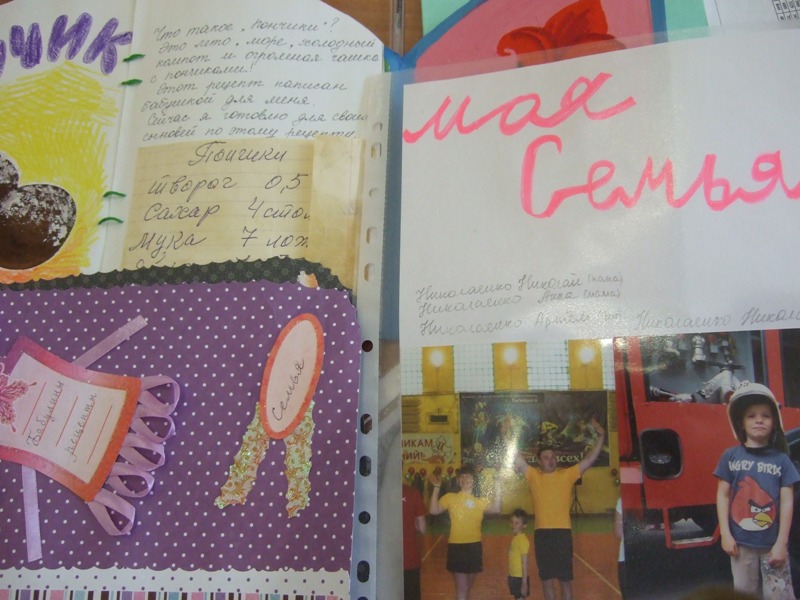 ЧИК
Что такое „Пончики"?
Это лето, море, холодный
компот и огромная чашка
с пончиками!
Этот рецепт написан
бабушкой для меня.
Сейчас я готовлю для своих
сыновей по этому рецепту.
Пончики
творог 0,5
сахар 4 стол.
мука 7 лож.
Бабулины
рецепты
семья
моя
Семья
Николаенко Николай (папа)
Николаенко Анна (мама)
Николаенко Артём Николаенко Никола
НИКАМ
 НИЙ!
всех!
ANGRY BIRDS